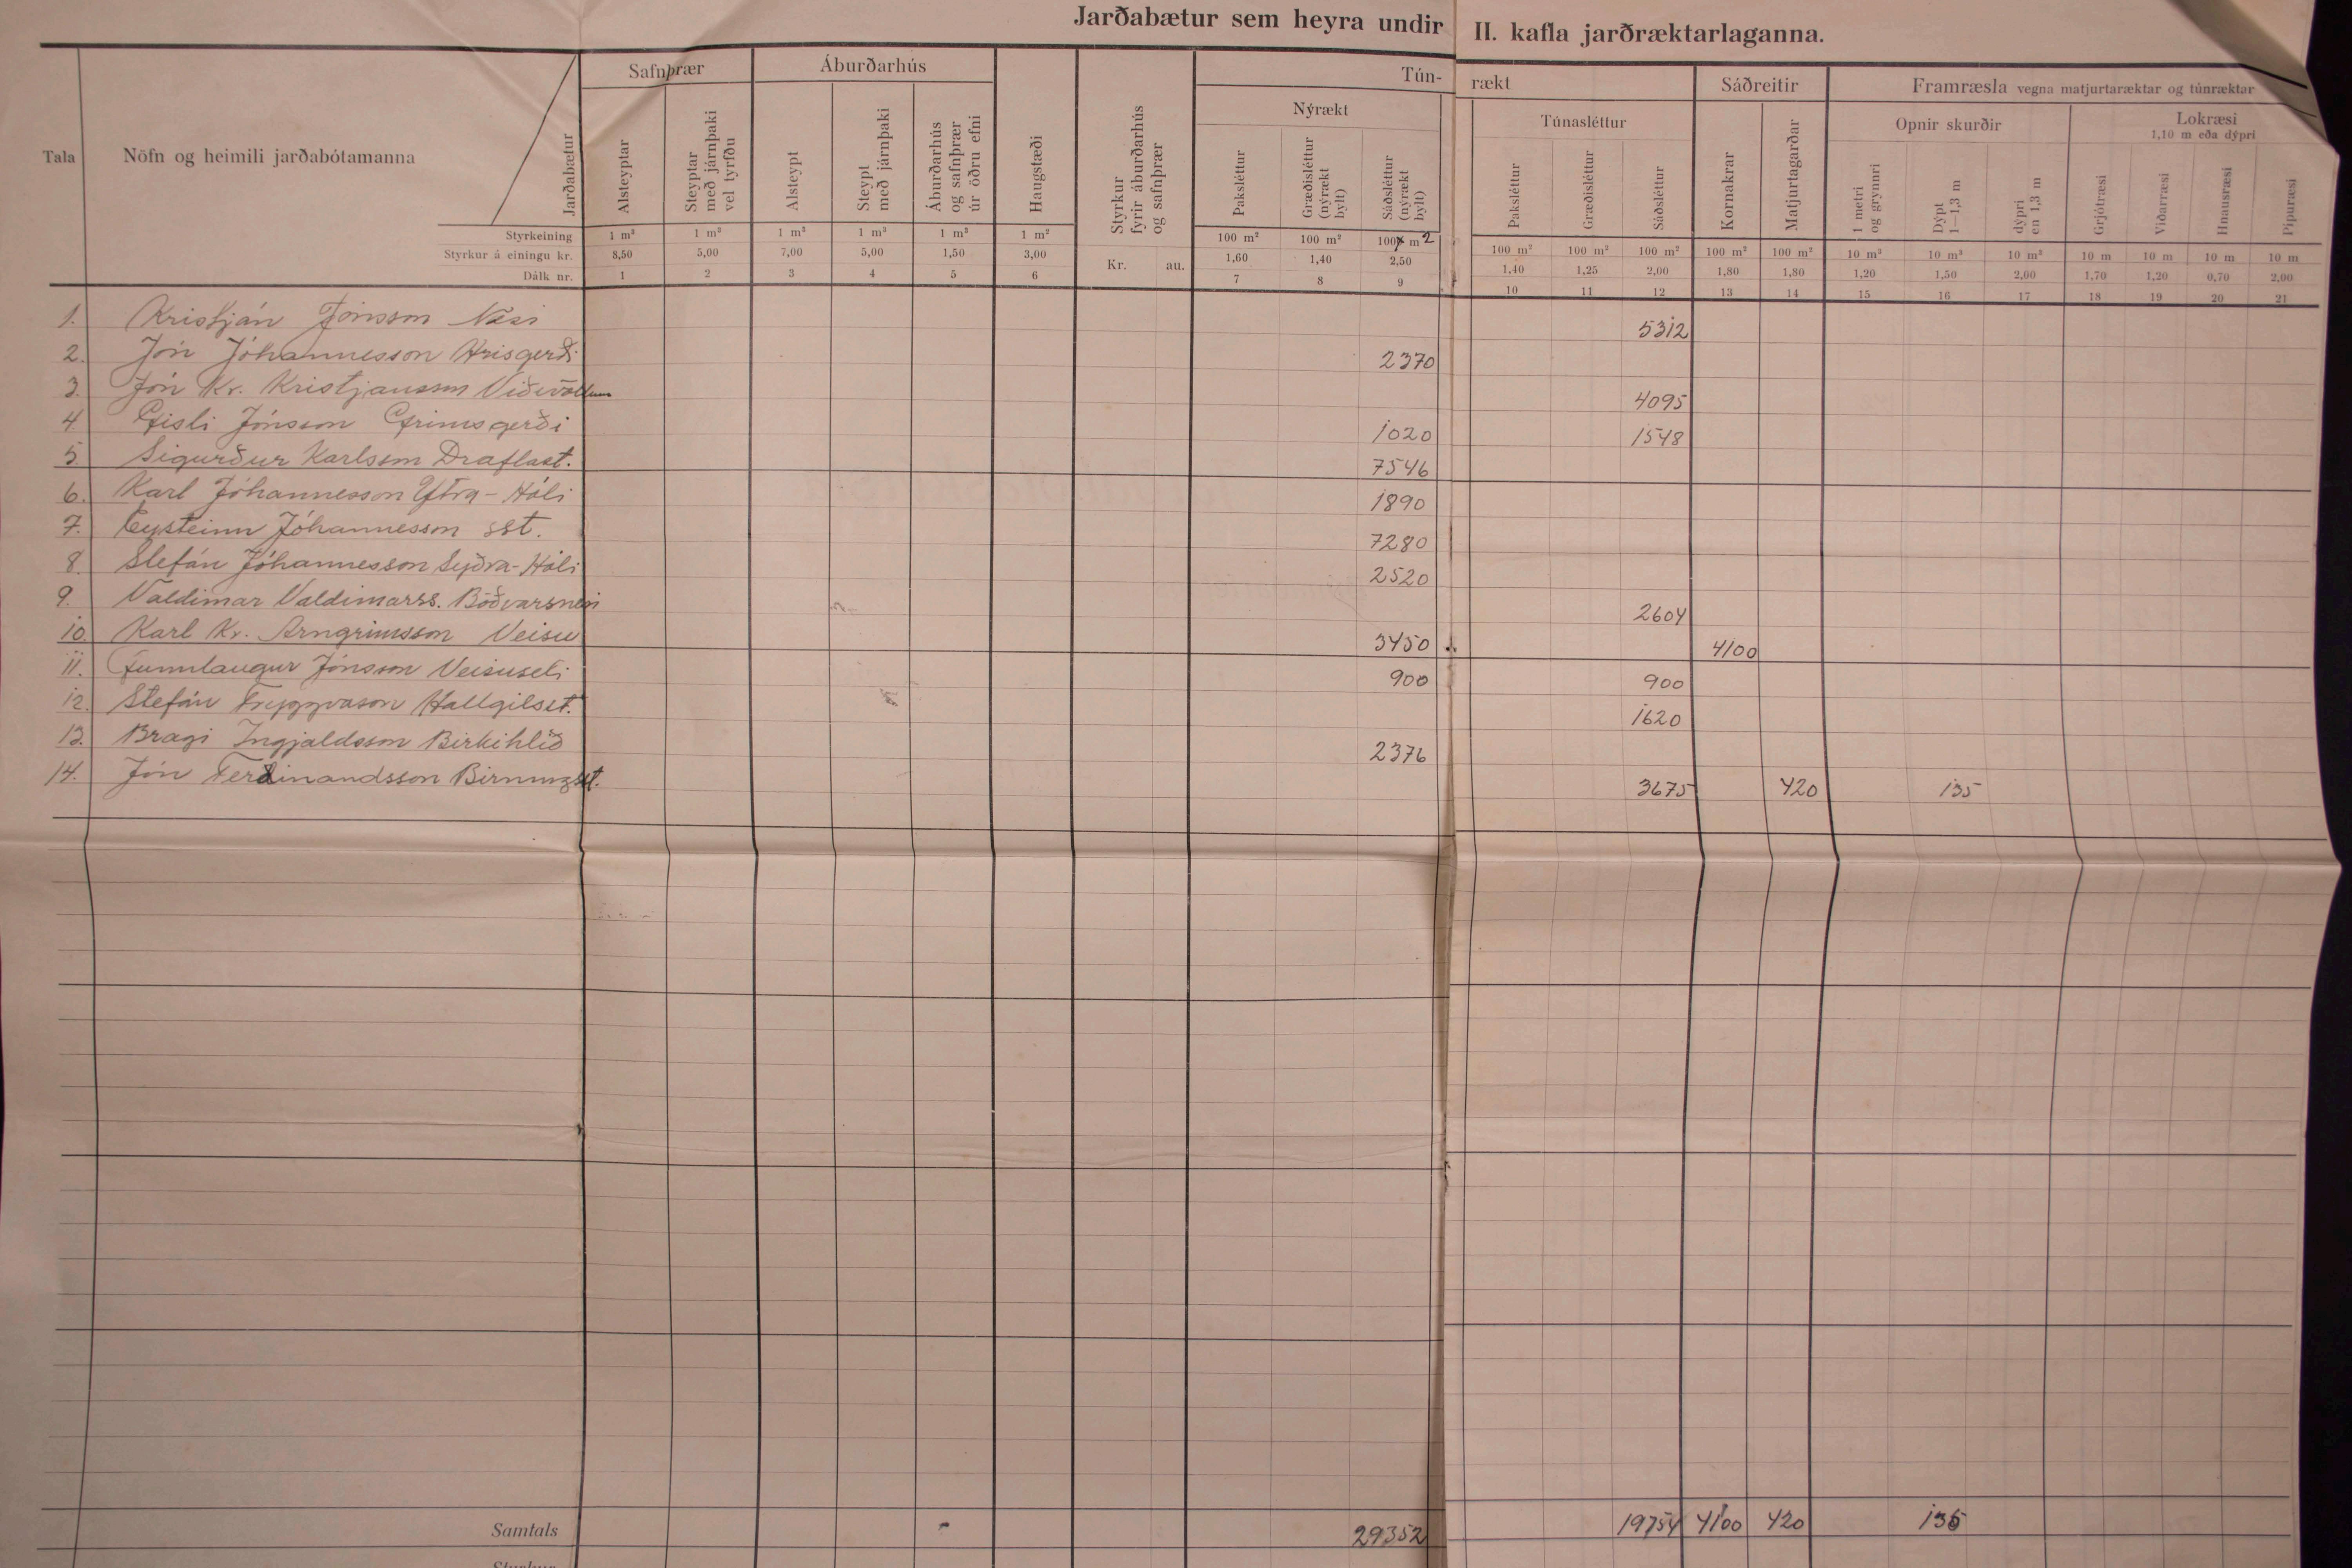 Jarðabætur sem heyra undir II. kafla jarðræktarlaganna.
Safnþrær Áburðarhús Tún-rækt Sáðreitir Framræsla vegna matjurtaræktar og túnræktar
Nýrækt Túnasléttur Opnir skurðir Lokræsi
1,10 m eða dýpri
Tala Nöfn og heimili jarðabótamanna Jarðabætur
Alsteyptar
Steyptar með járnþaki vel tyrfðu
Alsteypt
Steypt með járnþaki
Áburðarhús og safnþrær úr öðru efni
Haugstæði
Styrkur fyrir áburðarhús og safnþrær
Þaksléttur
Græðisléttur (nýrækt bylt)
Sáðsléttur (nýrækt bylt)
Þaksléttur
Græðisléttur
Sáðsléttur
Kornakrar
Matjurtagarðar
1 metri og grynnri
Dýpt 1—1,3 m
dýpri en 1,3 m
Grjótræsi
Viðarræsi
Hnausræsi
Pípuræsi
Styrkeining 1 m³ 1 m³ 1 m³ 1 m³ 1 m³ 1 m² 100 m² 100 m² 100 m2 100 m² 100 m² 100 m² 100 m² 100 m² 10 m³ 10 m³ 10 m³ 10 m 10 m 10 m 10 m
Styrkur á einingu kr. 8,50 5,00 7,00 5,00 1,50 3,00 Kr. au. 1,60 1,40 2,50 1,40 1,25 2,00 1,80 1,80 1,20 1,50 2,00 1,70 1,20 0,70 2,00
Dálk nr. 1 2 3 4 5 6 7 8 9 10 11 12 13 14 15 16 17 18 19 20 21
1. Kristján Jónsson Nesi 5312
2. Jón Jóhannesson Hrisgerði 2370
3. Jón Kr. Kristjansson Viðivöllum 4095
4. Gisli Jónsson Grimsgerði 1020 1548
5. Sigurður Karlsson Draflast. 7546
6. Karl Jóhannesson Ytra-Hóli 1890
7. Eysteinn Jóhannesson sst. 7280
8. Stefán Jóhannesson Syðra-Hóli 2520
9. Valdimar Valdimarss. Böðvarsnesi 2604
10. Karl Kr. Arngrimsson Veisu 3450 4100
11. Gunnlaugur Jónsson Veisuseli 900 900
12. Stefán Tryggvason Hallgilsst. 1620
13. Bragi Ingjaldsson Birkihlið 2376
14. Jón Ferdinandsson Birningsst. 3675 420 135
Samtals 29352 19754 4100 420 135
Styrkur